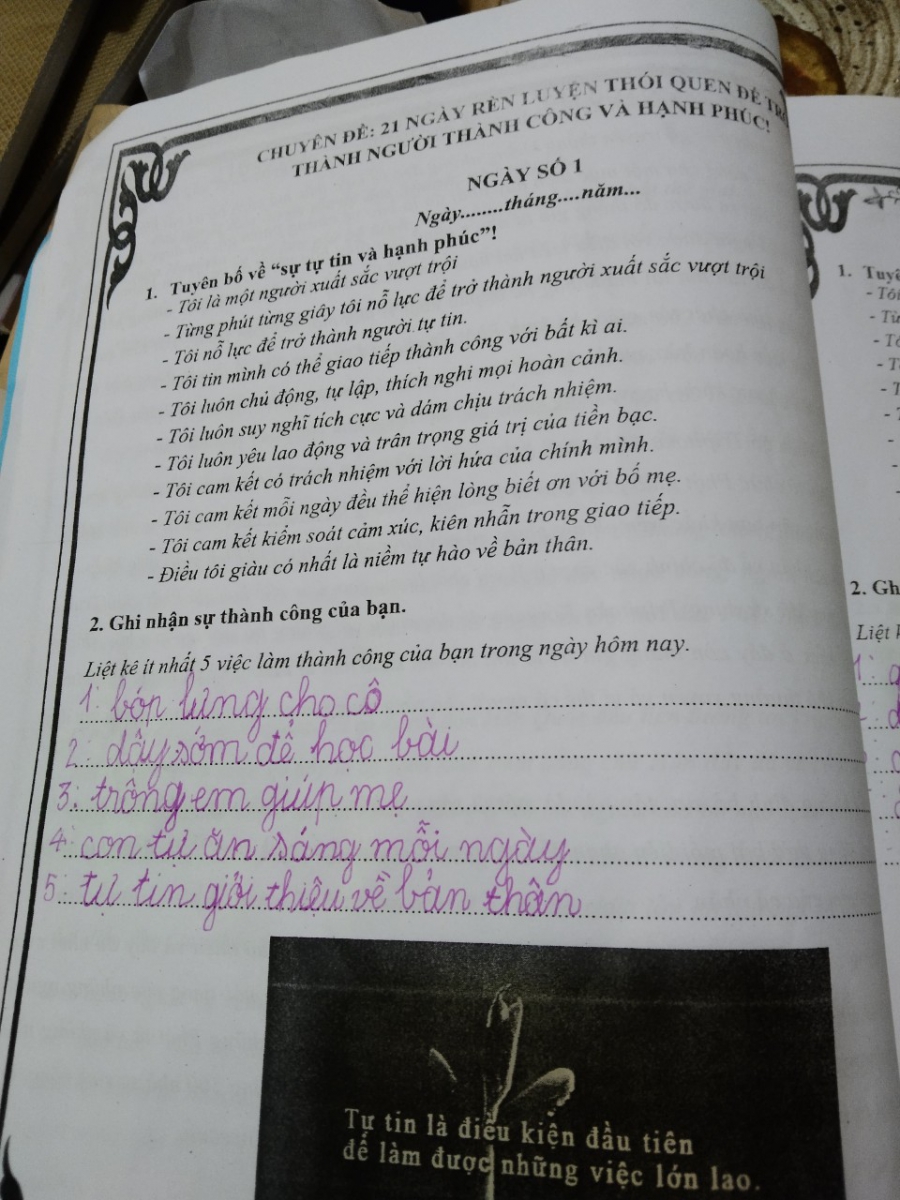 CHUYÊN ĐỀ: 21 NGÀY RÈN LUYỆN THÓI QUEN ĐỂ TRỞ
THÀNH NGƯỜI THÀNH CÔNG VÀ HẠNH PHÚC!
NGÀY SỐ 1
Ngày........tháng....năm...
1. Tuyên bố về “sự tự tin và hạnh phúc”!
- Tôi là một người xuất sắc vượt trội
- Từng phút từng giây tôi nỗ lực để trở thành người xuất sắc vượt trội
- Tôi nỗ lực để trở thành người tự tin.
- Tôi tin mình có thể giao tiếp thành công với bất kì ai.
- Tôi luôn chủ động, tự lập, thích nghi mọi hoàn cảnh.
- Tôi luôn suy nghĩ tích cực và dám chịu trách nhiệm.
- Tôi luôn yêu lao động và trân trọng giá trị của tiền bạc.
- Tôi cam kết có trách nhiệm với lời hứa của chính mình.
- Tôi cam kết mỗi ngày đều thể hiện lòng biết ơn với bố mẹ.
- Tôi cam kết kiểm soát cảm xúc, kiên nhẫn trong giao tiếp.
- Điều tôi giàu có nhất là niềm tự hào về bản thân.
2. Ghi nhận sự thành công của bạn.
Liệt kê ít nhất 5 việc làm thành công của bạn trong ngày hôm nay.
1: bóp lưng cho cô
2: dậy sớm để học bài
3: trông em giúp mẹ
4: con tự ăn sáng mỗi ngày
5: tự tin giới thiệu về bản thân
Tự tin là điều kiện đầu tiên
để làm được những việc lớn lao.
1.
2.